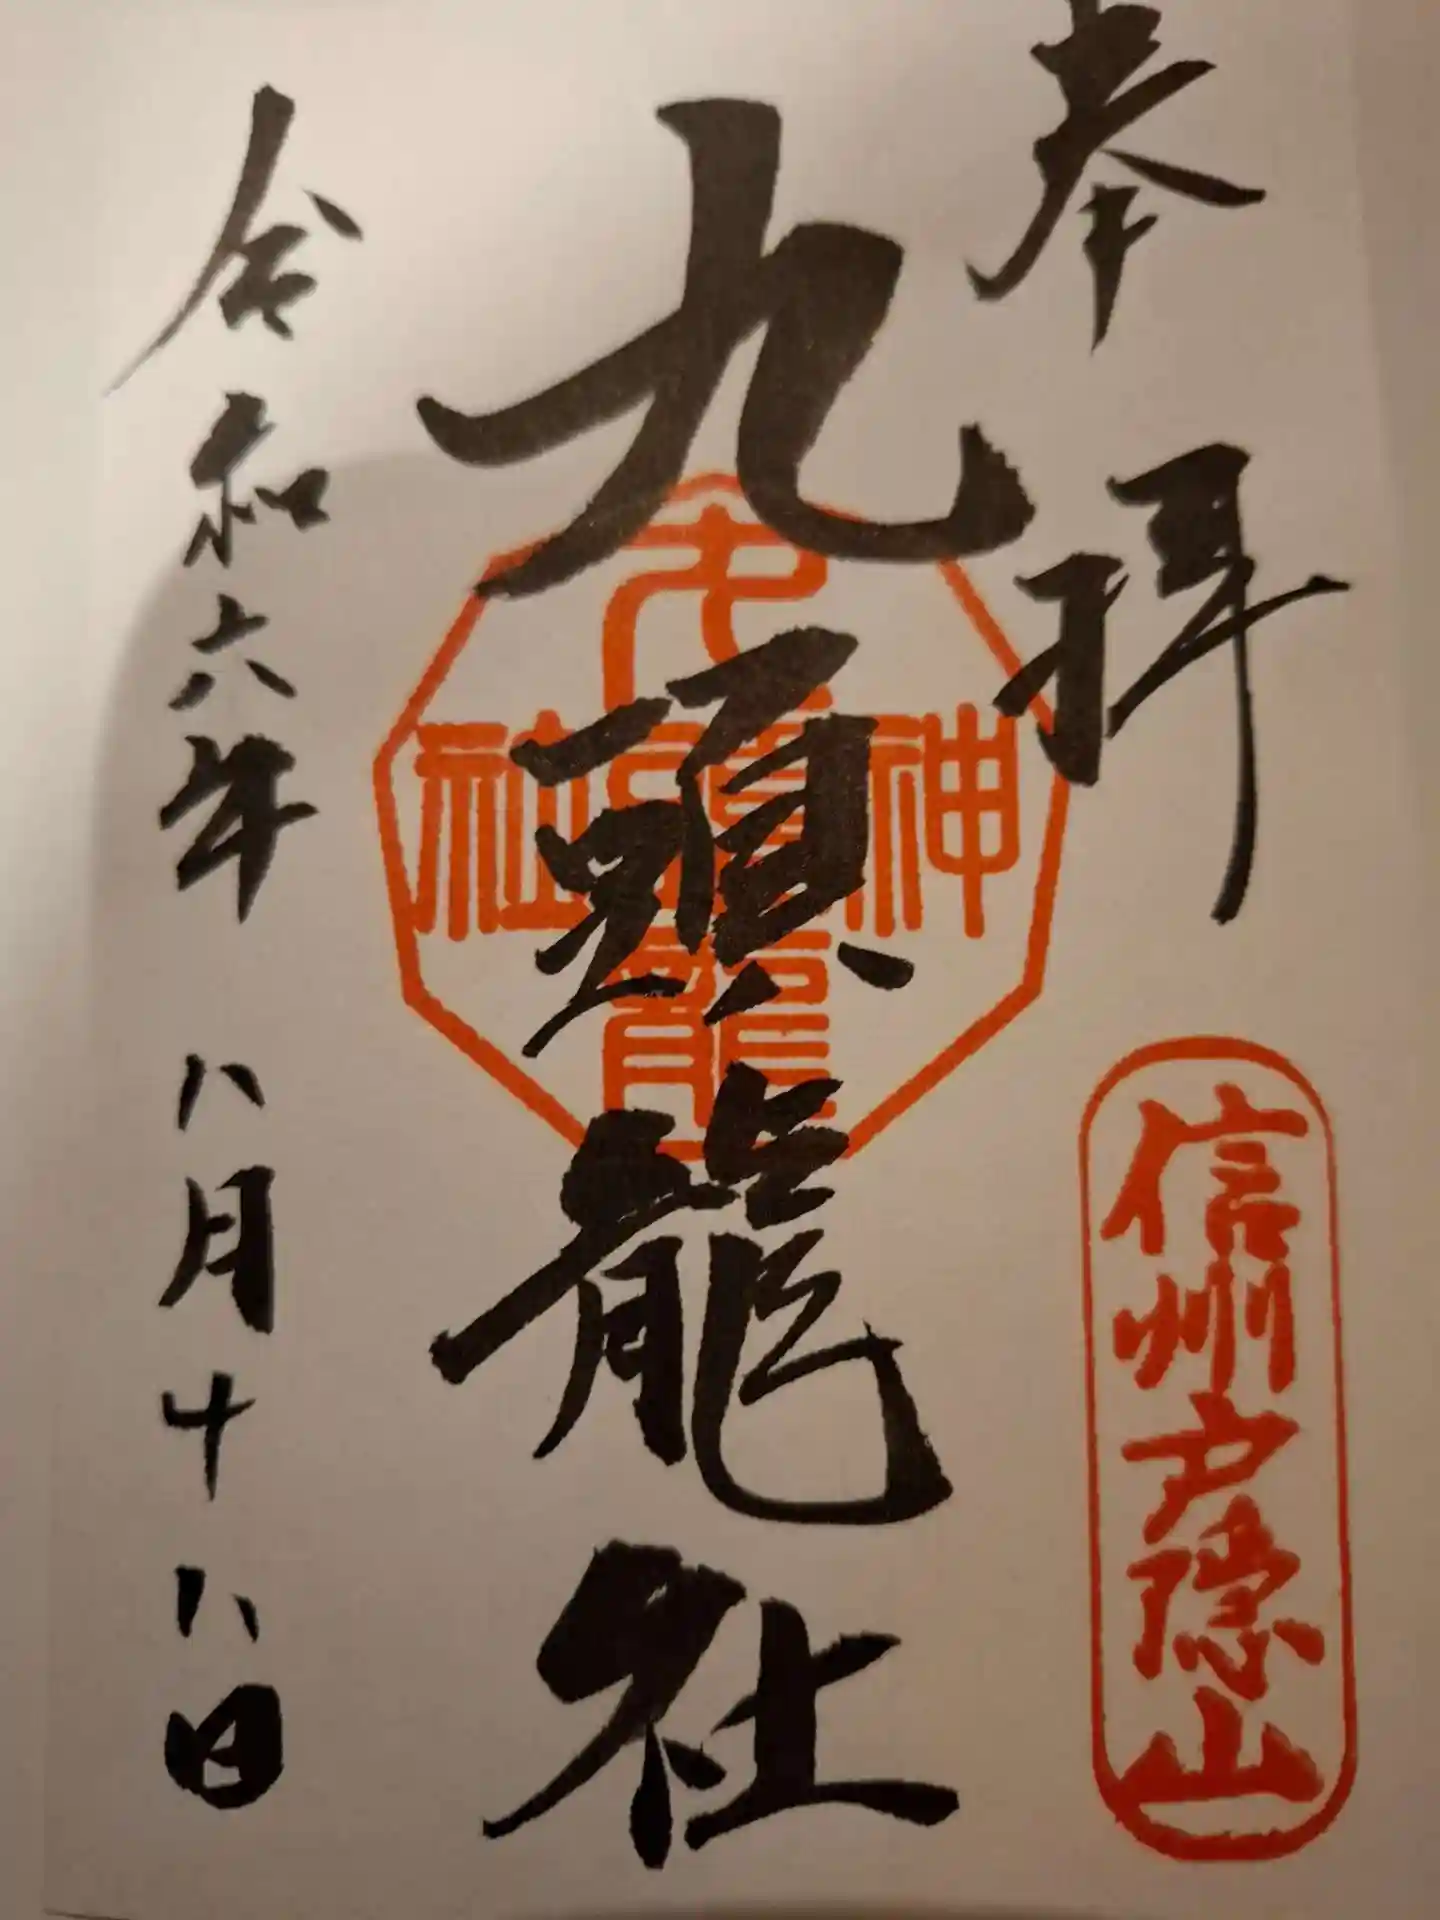 奉拝
信州戸隠山
九頭龍社
九頭龍
神社
令和六年 八月十八日